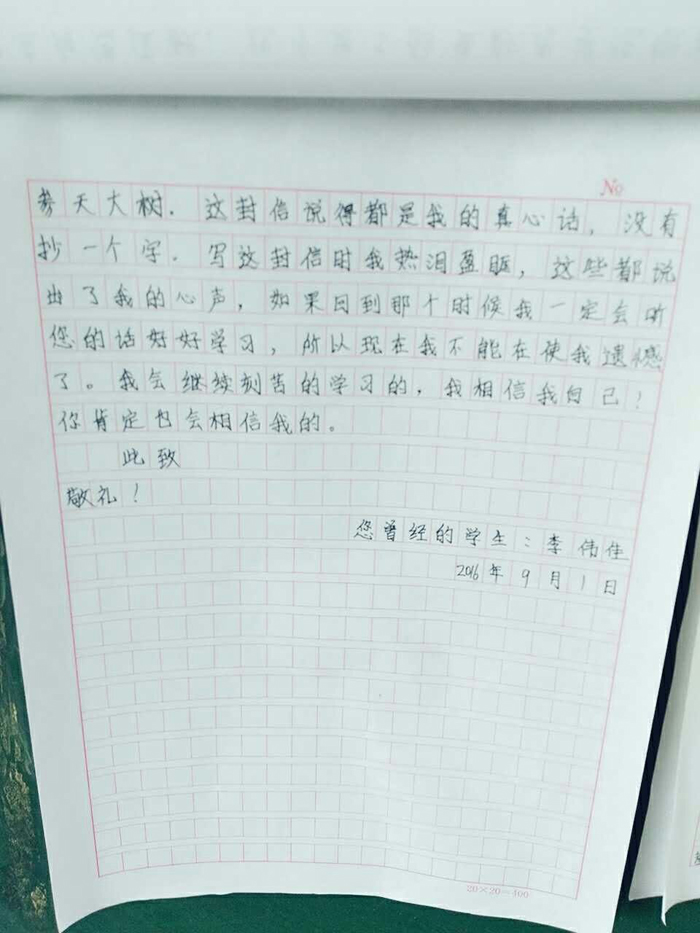 No
参天大树．这封信说得都是我的真心话，没有
抄一个字．写这封信时我热泪盈眶，这些都说
出了我的心声，如果回到那个时候我一定会听
您的话好好学习，所以现在我不能在使我遗憾
了。我会继续刻苦的学习的，我相信我自己！
你肯定也会相信我的。
此致
敬礼！
您曾经的学生：李伟佳
2016年9月1日
20×20=400